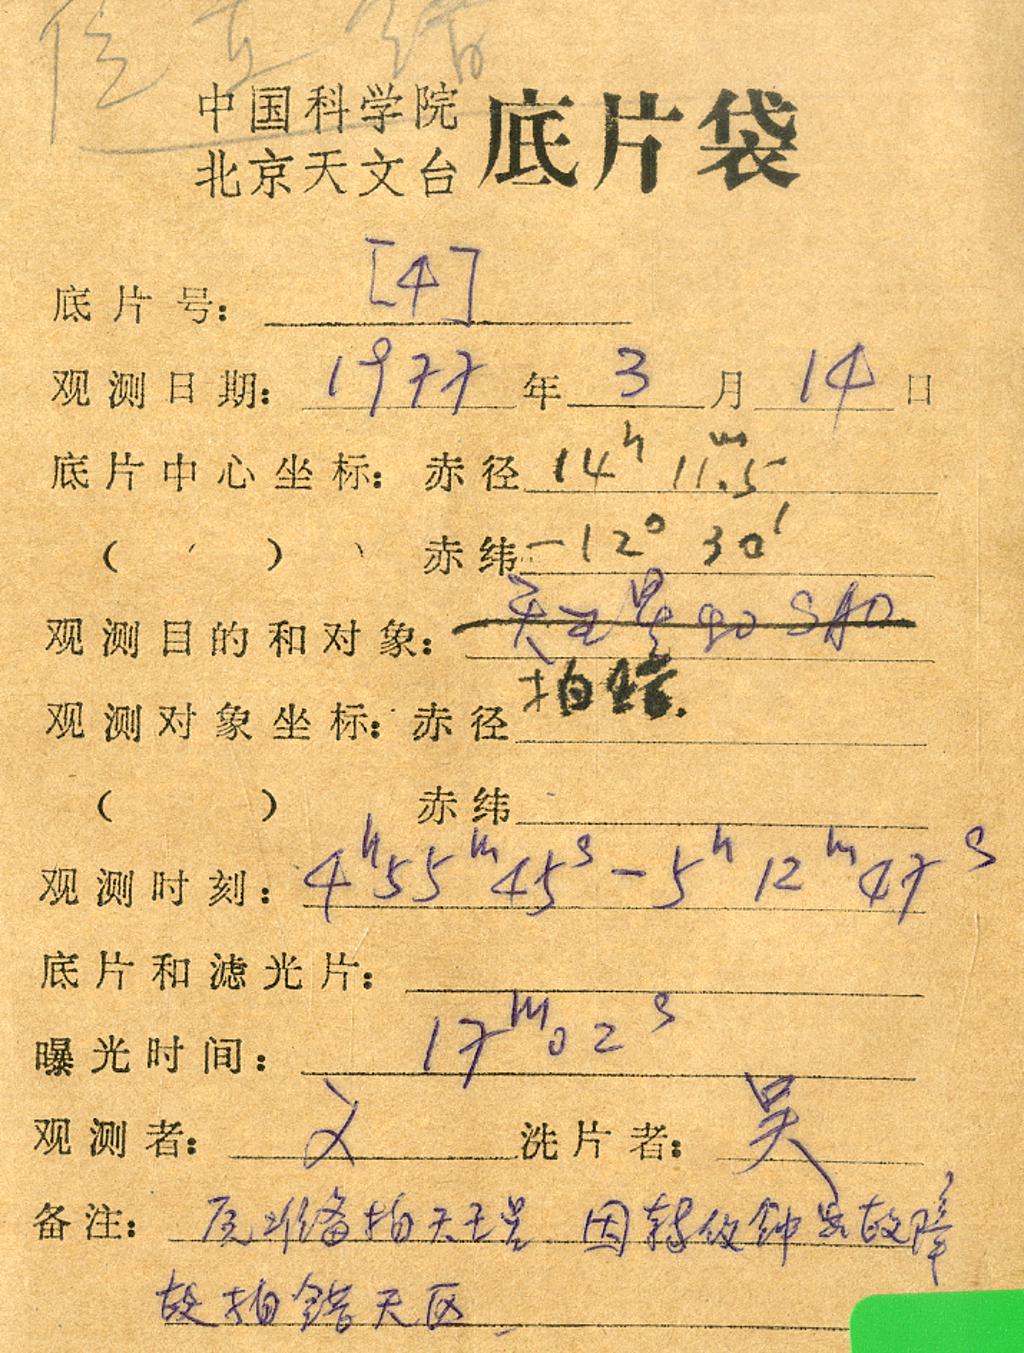 位置错
中国科学院
北京天文台 底片袋
底片号: [4]
观测日期: 1977 年 3 月 14 日
底片中心坐标: 赤径 14h 11m.5
( ) 赤纬 -12° 30′
观测目的和对象: 天王星 90 SAO
拍错.
观测对象坐标: 赤径
( ) 赤纬
观测时刻: 4h55m45s - 5h 12m47s
底片和滤光片:
曝光时间: 17m02s
观测者: 文 洗片者: 吴
备注: 原准备拍天王星 因转仪钟出故障
故拍错天区